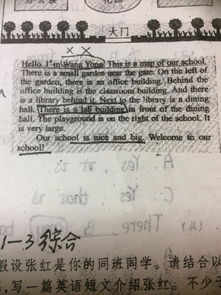 大门
Hello, I'm Wang Yong. This is a map of our school.
There is a small garden near the gate. On the left of
the garden, there is an office building. Behind the
office building is the classroom building. And there
is a library behind it. Next to the library is a dining
hall. There is a lab building in front of the dining
hall. The playground is on the right of the school. It
is very large.
Our school is nice and big. Welcome to our
school!
1-3综合
假设张红是你的同班同学。请结合以
写一篇英语短文介绍张红。不少